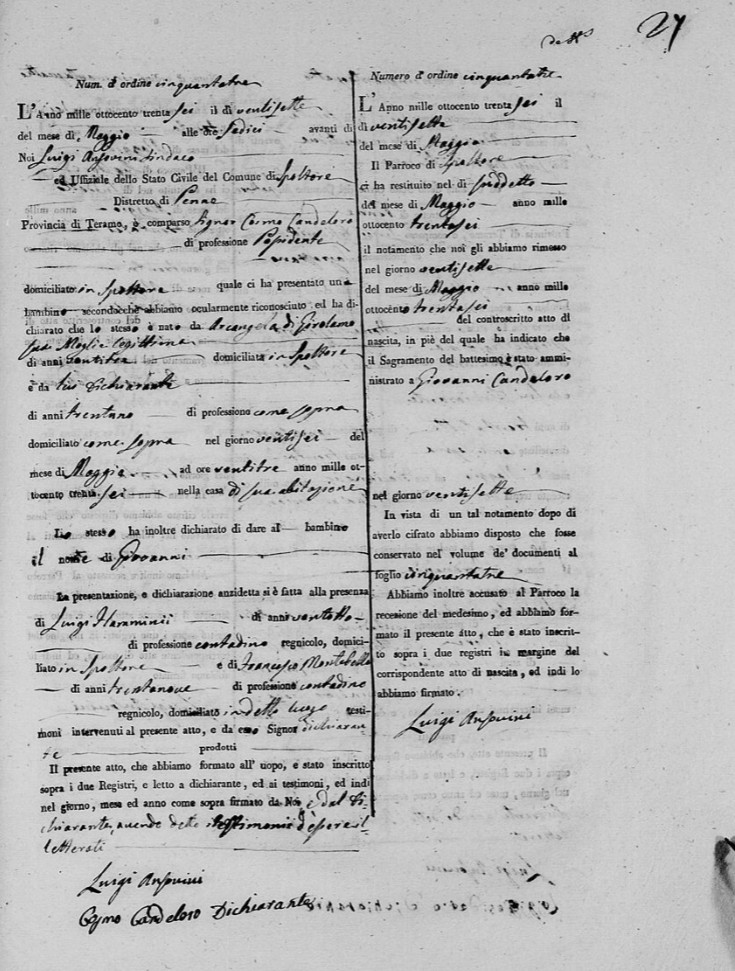 27
Num. d'ordine cinquantatre
L'Anno mille ottocento trenta sei il dì ventisette
del mese di Maggio alle ore sedici avanti di
Noi Luigi Ansuini Sindaco
ed Uffiziale dello Stato Civile del Comune di Spoltore
Distretto di Penne
Provincia di Teramo, è comparso Signor Cosmo Candeloro
di professione Possidente
domiciliato in Spoltore quale ci ha presentato una
bambino secondocchè abbiamo ocularmente riconosciuto ed ha di-
chiarato che lo stesso è nato da Arcangela di Girolamo
sua Moglie legittima
di anni ventitre domiciliata in Spoltore
e da lui Dichiarante
di anni trentuno di professione come sopra
domiciliato come sopra nel giorno ventisei del
mese di Maggio ad ore ventitre anno mille ot-
tocento trenta sei nella casa di sua abitazione
Lo stesso ha inoltre dichiarato di dare al bambino
il nome di Giovanni
La presentazione, e dichiarazione anzidetta si è fatta alla presenza
di Luigi di anni ventotto
di professione contadino regnicolo, domici-
liato in Spoltore e di Francesco Montebello
di anni trentanove di professione contadino
regnicolo, domiciliato in detto luogo testi-
moni intervenuti al presente atto, e da esso Signor dichiaran
te prodotti
Il presente atto, che abbiamo formato all'uopo, e stato inscritto
sopra i due Registri, e letto a dichiarante, ed ai testimoni, ed indi
nel giorno, mese ed anno come sopra firmato da Noi e dal di-
chiarante, avendo detto i testimonii d'essere il-
letterati
Luigi Ansuini
Cosmo Candeloro Dichiarante
Numero d'ordine cinquantatre
L'Anno mille ottocento trenta sei il
dì ventisette
del mese di Maggio
Il Parroco di Spoltore
ci ha restituito nel dì suddetto
del mese di Maggio anno mille
ottocento trentasei
il notamento che noi gli abbiamo rimesso
nel giorno ventisette
del mese di Maggio anno mille
ottocento trentasei
del controscritto atto di
nascita, in piè del quale ha indicato che
il Sagramento del battesimo è stato ammi-
nistrato a Giovanni Candeloro
nel giorno ventisette
In vista di un tal notamento dopo di
averlo cifrato abbiamo disposto che fosse
conservato nel volume de' documenti al
foglio cinquantatre
Abbiamo inoltre accusato al Parroco la
recesione del medesimo, ed abbiamo for-
mato il presente atto, che è stato inscrit-
to sopra i due registri in margine del
corrispondente atto di nascita, ed indi lo
abbiamo firmato.
Luigi Ansuini